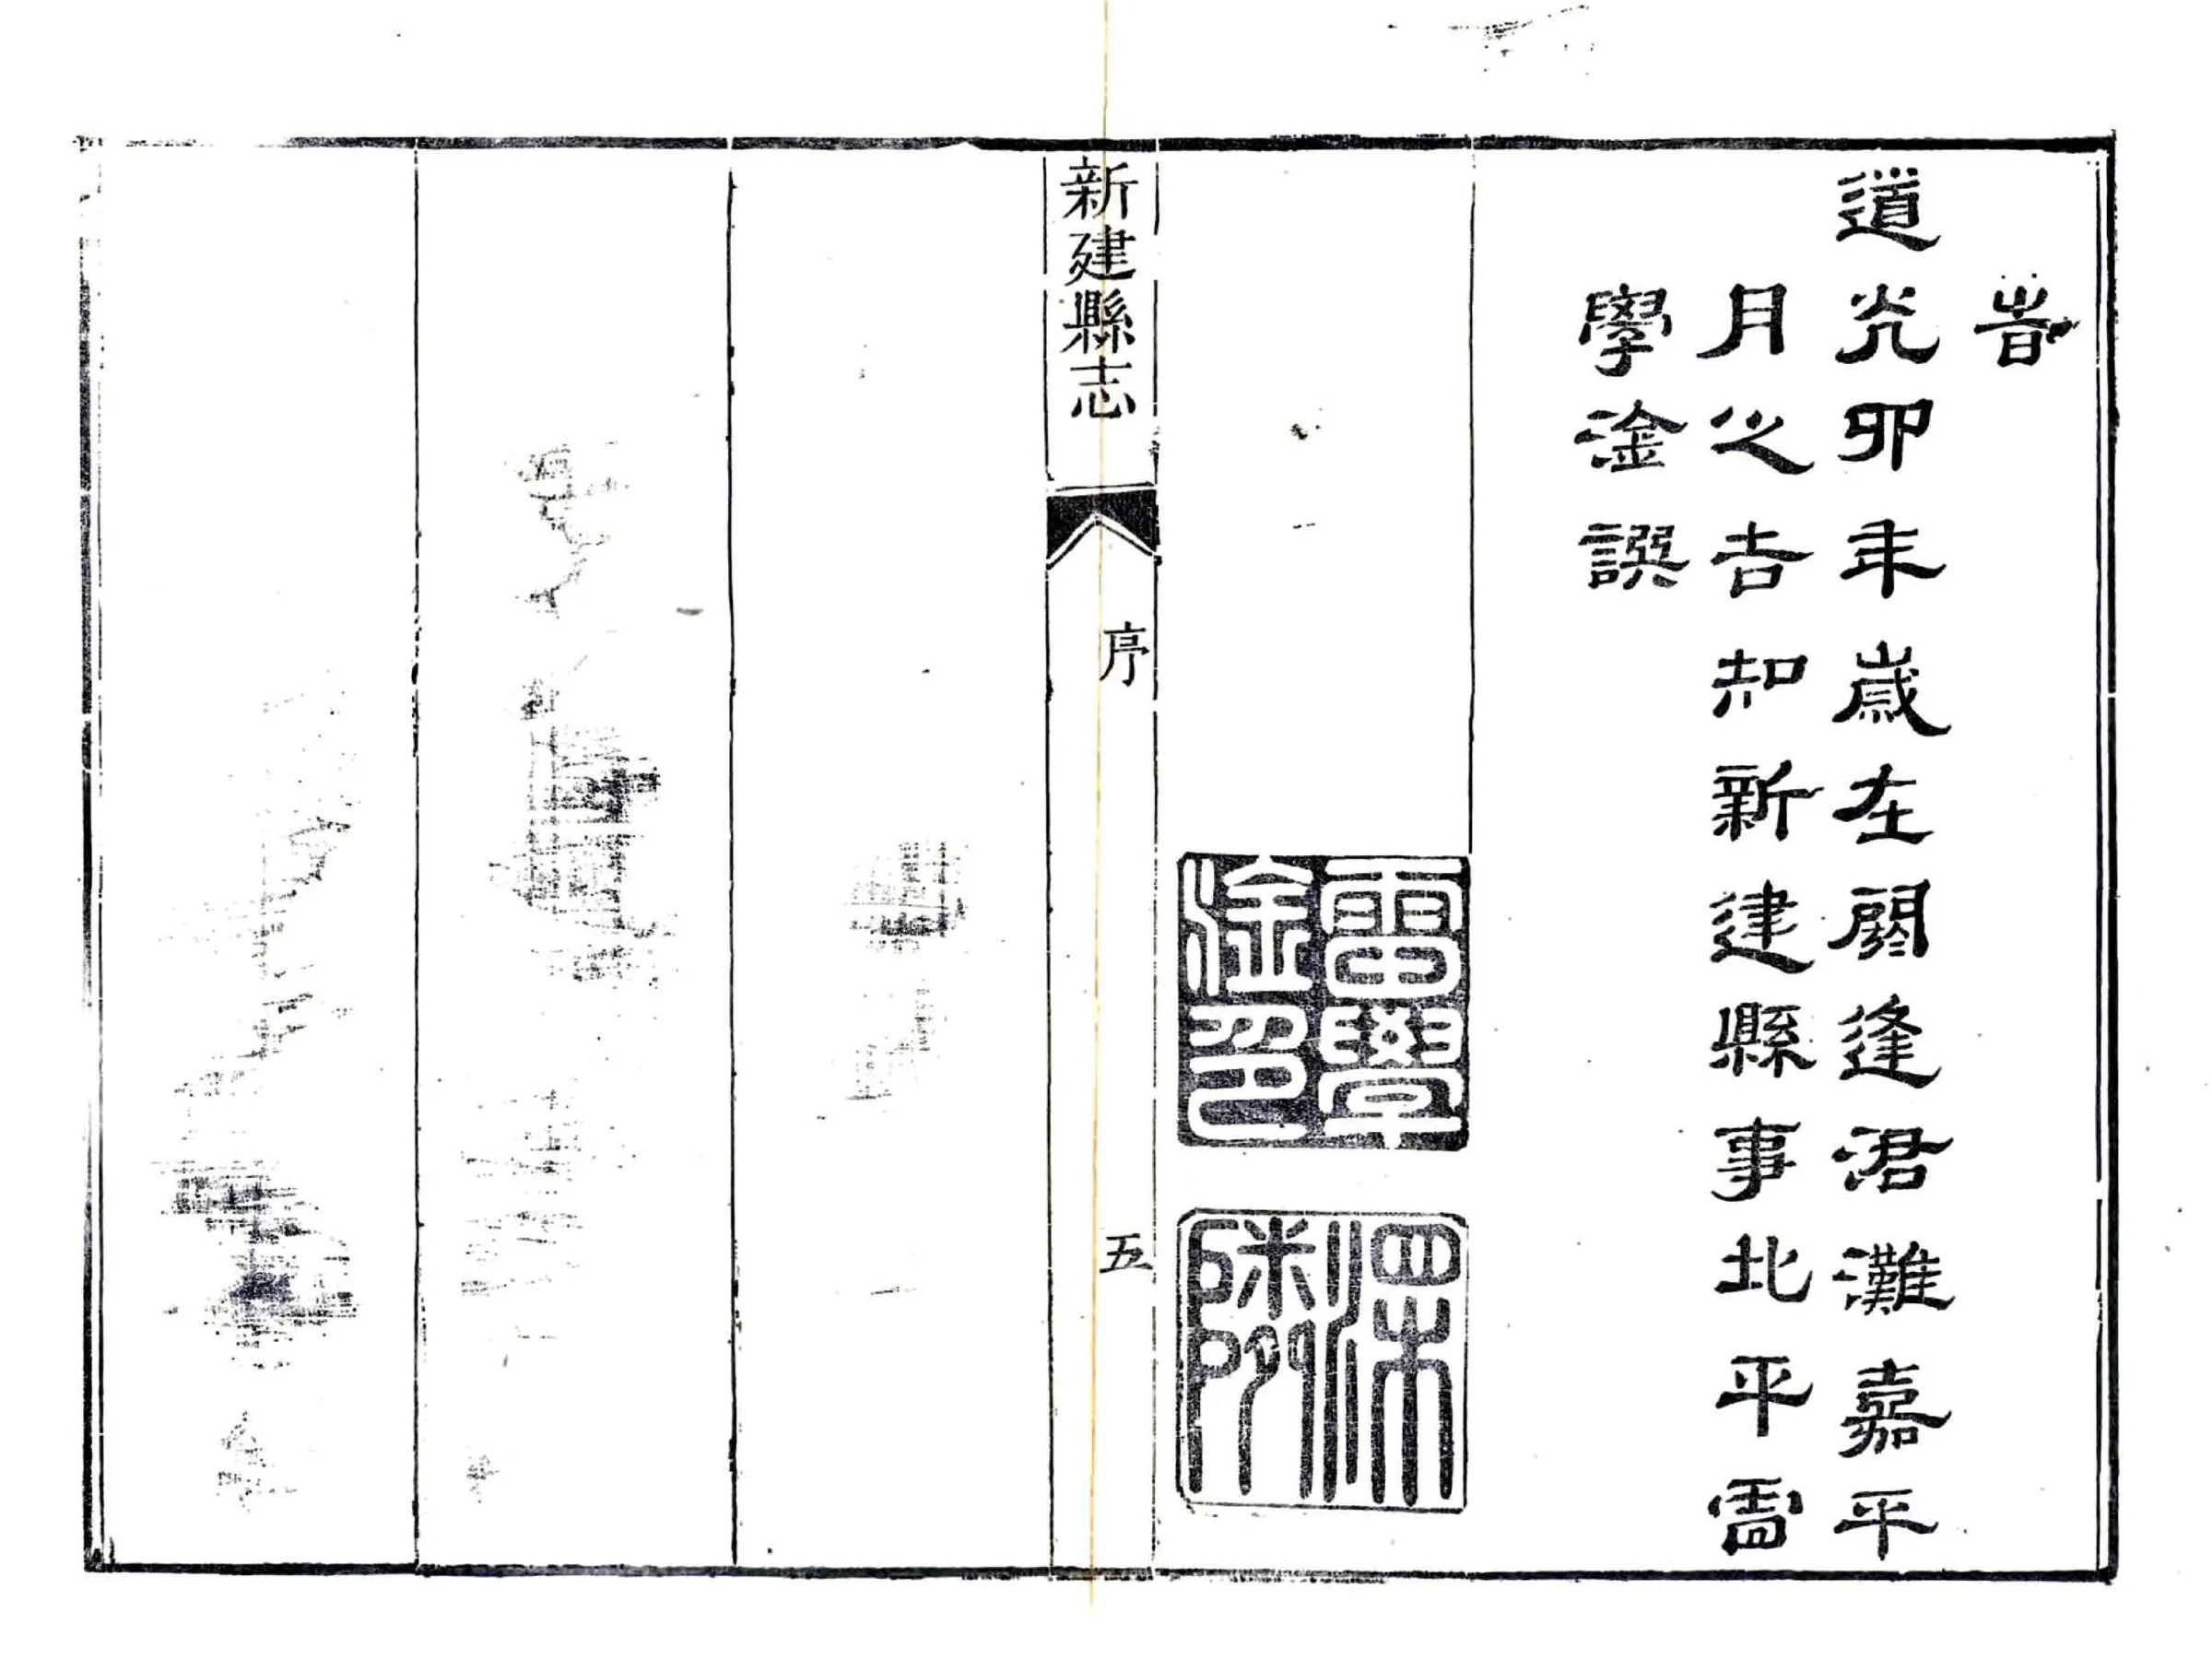 旹
道光四年歲在閼逢涒灘嘉平
月之吉知新建縣事北平雷
學淦譔
雷學
淦印
新建縣志
序
五